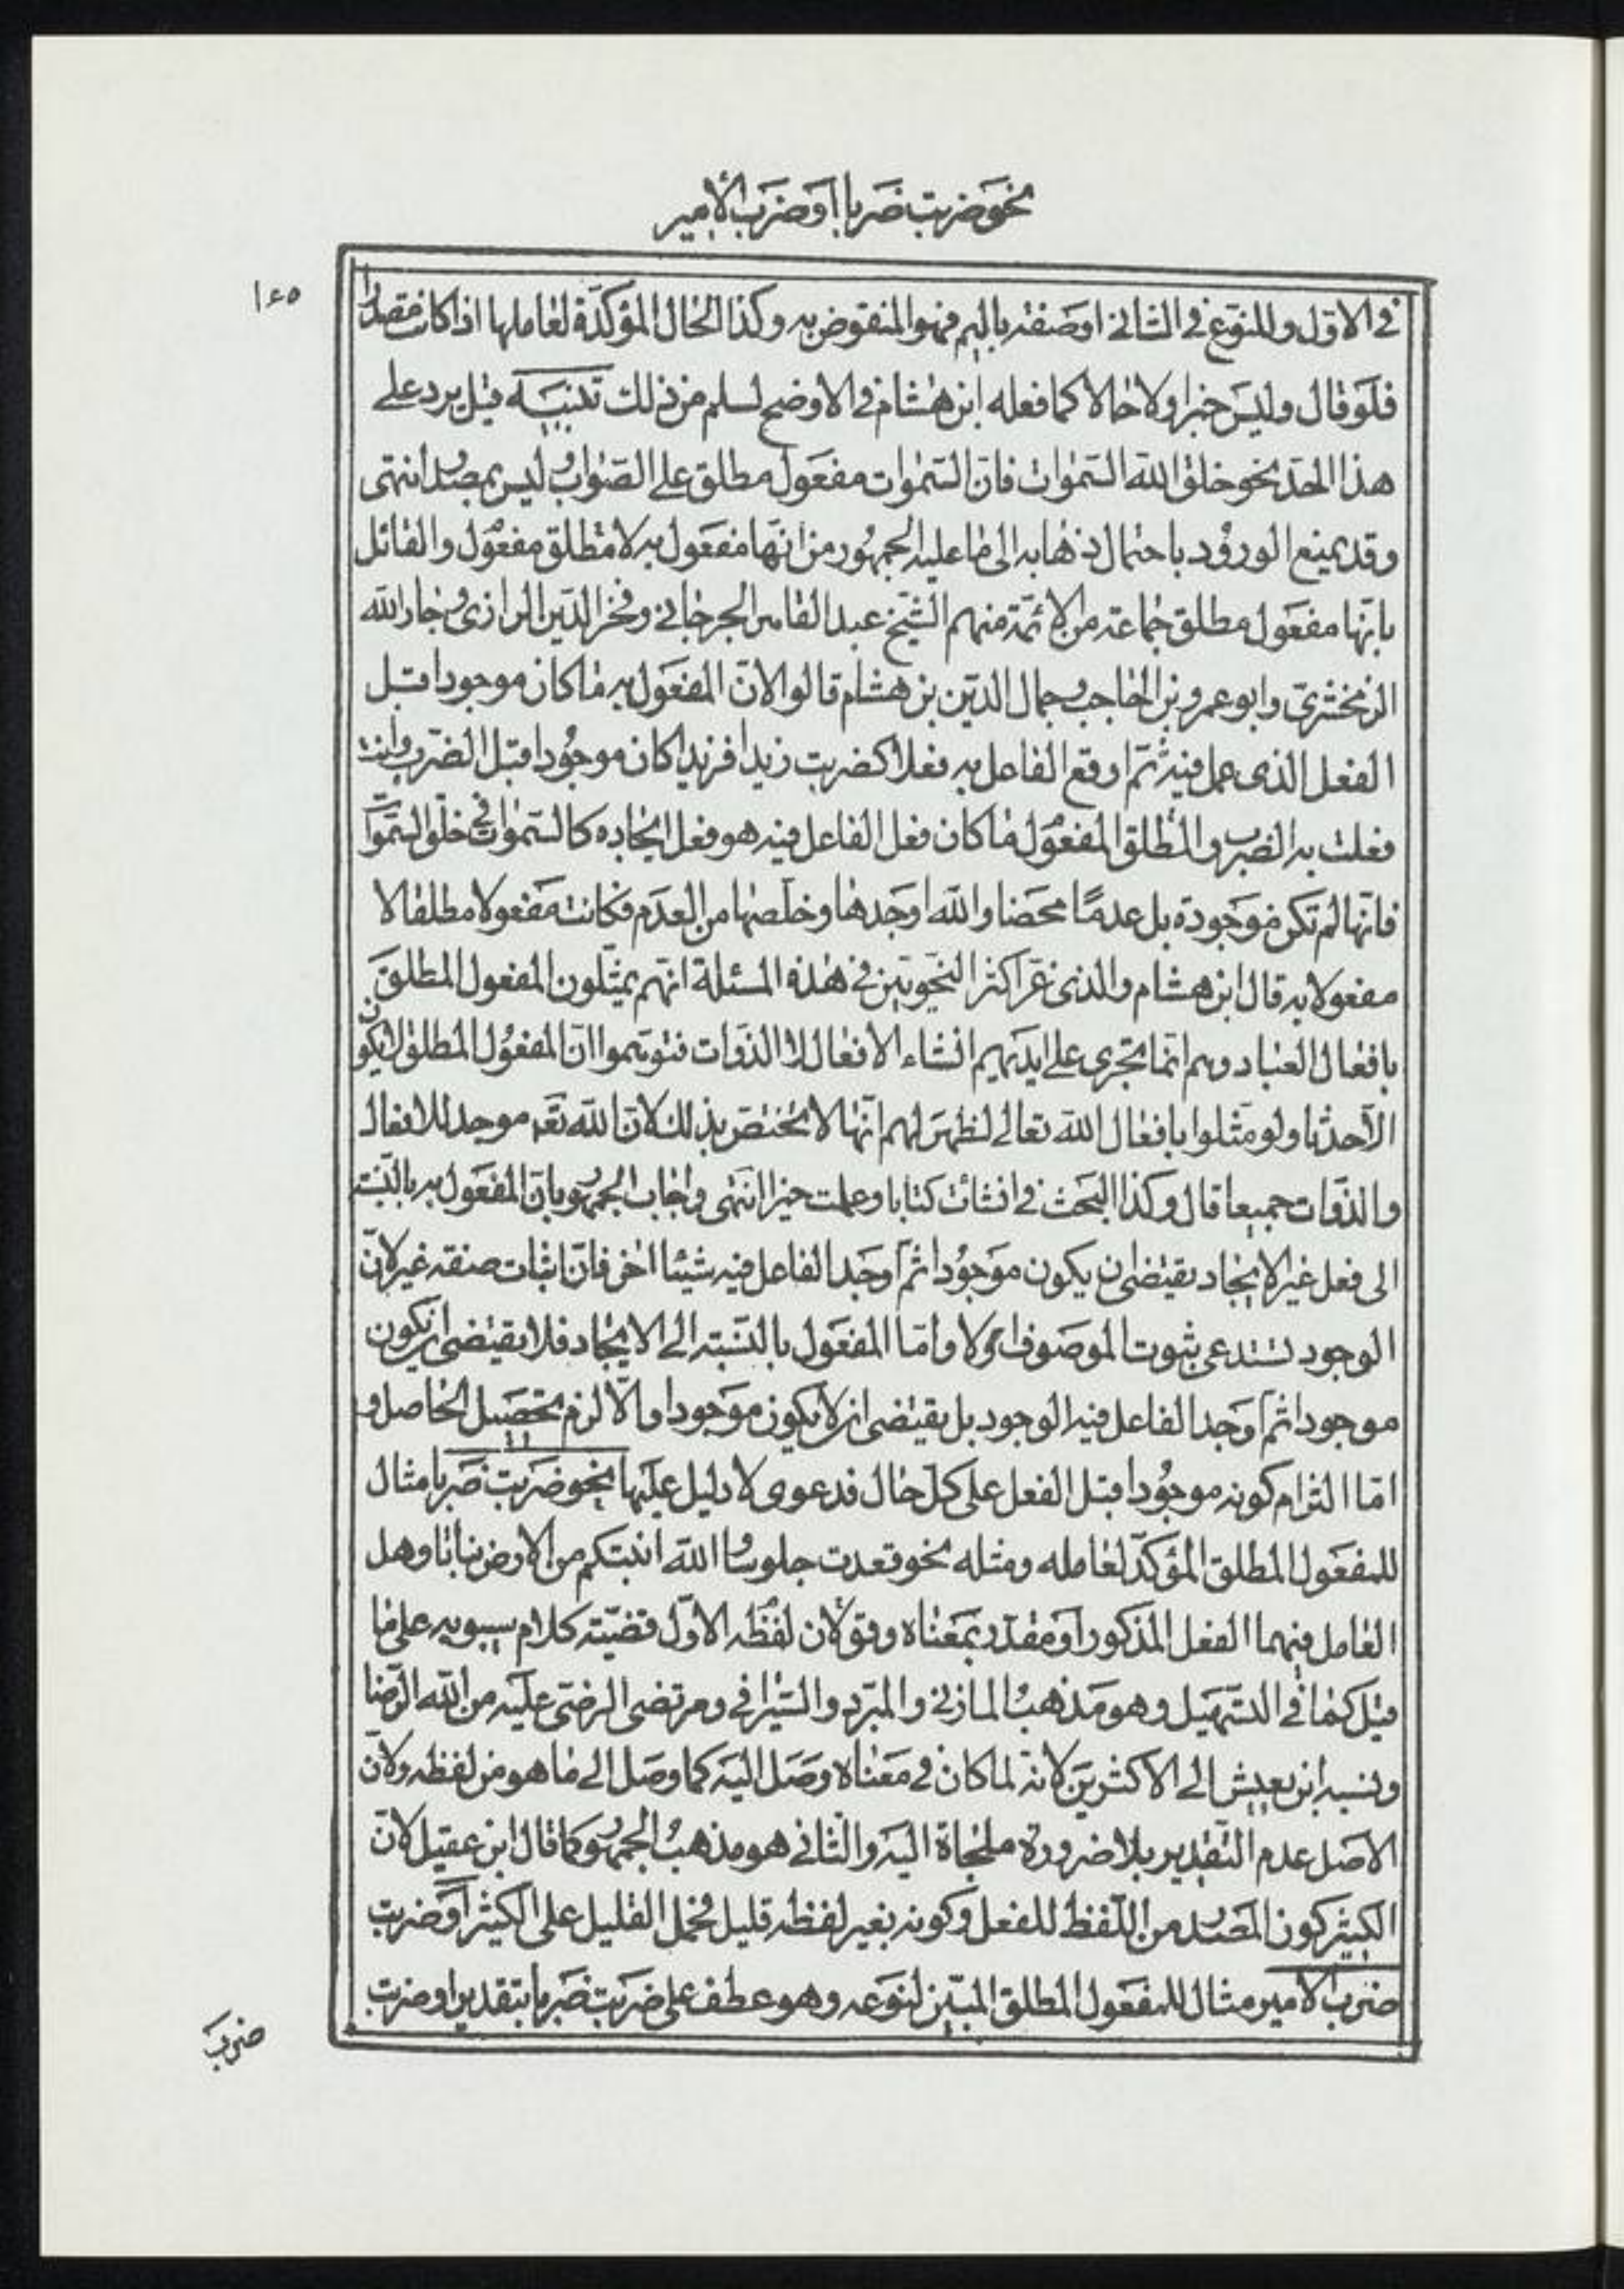 نحو ضربت ضربا او ضرب الأمير
١٤٥
فى الاوّل وللنوع فى الثانى او صفته باليم فهو المنقوض به وكذا الحال المؤكّدة لعاملها اذا كانت مصدرا
فلو قال وليس خبرا ولا حالا كما فعله ابن هشام فى الاوضح لسلم من ذلك تنبيه قيل يرد على
هذا الحدّ نحو خلق الله السّموات فانّ السّموات مفعول مطلق على الصّواب وليس بمصدر انتهى
وقد يمنع الورود باحتمال ذهابه الى ما عليه الجمهور من انّها مفعول به لا مطلق مفعول والقائل
بانّها مفعول مطلق جماعة من الائمّة منهم الشّيخ عبد القاهر الجرجانى وفخر الدّين الرازى وجار الله
الزمخشرىّ وابو عمرو بن الحاجب وجمال الدّين بن هشام قالوا لانّ المفعول به ما كان موجودا قبل
الفعل الذى عمل فيه ثمّ اوقع الفاعل به فعلا كضربت زيدا فزيدا كان موجودا قبل الضّرب وانت
فعلت به الضرب والمطلق المفعول ما كان فعل الفاعل فيه هو فعل ايجاده كالسّموات فى خلق السّموات
فانّها لم تكن موجودة بل عدمًا محضا والله اوجدها وخلّصها من العدم فكانت مفعولا مطلقا لا
مفعولا به قال ابن هشام والذى غرّ اكثر النّحويّين فى هذه المسئلة انّهم يمثّلون المفعول المطلق
بافعال العباد وهم انّما تجرى على ايديهم انشاء الافعال لا الذوات فتوهّموا انّ المفعول المطلق لا يكون
الّا حدثا ولو مثّلوا بافعال الله تعالى لظهر لهم انّها لا تختصّ بذلك لانّ الله تعه موجد للافعال
والذّوات جميعا قال وكذا البحث فى انشات كتابا وعملت خيرا انتهى واجاب الجمهور بانّ المفعول به بالنّسبة
الى فعل غير الايجاد يقتضى ان يكون موجودا ثمّ اوجد الفاعل فيه شيئا اخر فانّ اثبات صفة غير لانّ
الوجود تستدعى ثبوت الموصوف اوّلا وامّا المفعول بالنّسبة الى الايجاد فلا يقتضى ان يكون
موجودا ثمّ اوجد الفاعل فيه الوجود بل يقتضى ان لا يكون موجودا والّا لزم تحصيل الحاصل و
امّا التزام كونه موجودا قبل الفعل على كلّ حال فدعوى لا دليل عليها نحو ضربت ضربا مثال
للمفعول المطلق المؤكّد لعامله ومثله نحو قعدت جلوسا والله انبتكم من الارض نباتا وهل
العامل فيهما الفعل المذكور او مقدّر بمعناه وقولان لفظه الاوّل قضيّة كلام سيبويه على ما
قيل كما فى التّسهيل وهو مذهب المازنى والمبرّد والسّيرافى ومرتضى الرضىّ عليه من الله الرّضا
ونسبه ابن يعيش الى الاكثرين لانّه لما كان فى معناه وصل اليه كما وصل الى ما هو من لفظه ولانّ
الاصل عدم التّقدير بلا ضرورة ملجاة اليه والثّانى هو مذهب الجمهور كما قال ابن عقيل لانّ
الكثير كون المصدر من اللّفظ للفعل وكونه بغير لفظه قليل فحمل القليل على الكثير او ضربت
ضرب الامير مثال للمفعول المطلق المبيّن لنوعه وهو عطف على ضربت ضربا بتقدير او ضربت
ضرب